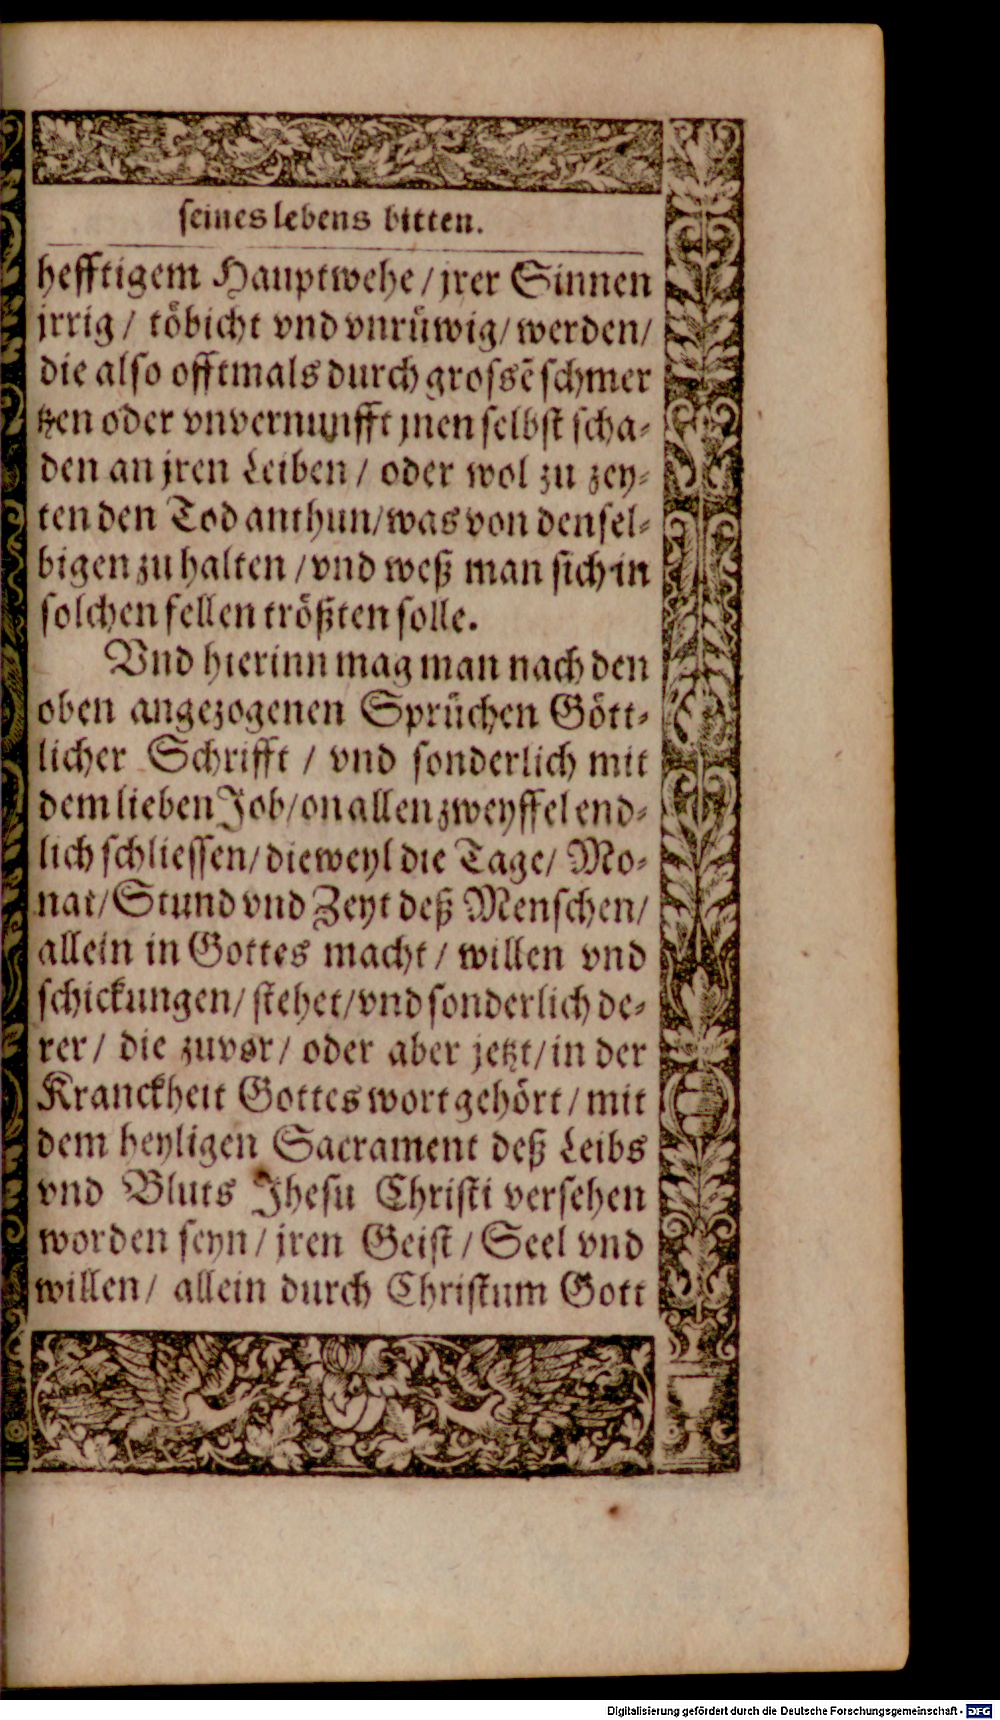 seines lebens bitten.
hefftigem Hauptwehe / jrer Sinnen
jrrig / töbicht vnd vnrüwig / werden /
die also offtmals durch grossē schmer
tzen oder vnvernunfft jnen selbst scha-
den an jren Leiben / oder wol zu zey-
ten den Tod anthun / was von densel-
bigen zu halten / vnd weß man sich in
solchen fellen trößten solle.
Vnd hierinn mag man nach den
oben angezogenen Sprüchen Gött-
licher Schrifft / vnd sonderlich mit
dem lieben Job / on allen zweyffel end-
lich schliessen / dieweyl die Tage / Mo-
nat / Stund vnd Zeyt deß Menschen /
allein in Gottes macht / willen vnd
schickungen / stehet / vnd sonderlich de-
rer / die zuvor / oder aber jetzt / in der
Kranckheit Gottes wort gehört / mit
dem heyligen Sacrament deß Leibs
vnd Bluts Jhesu Christi versehen
worden seyn / jren Geist / Seel vnd
willen / allein durch Christum Gott
Digitalisierung gefördert durch die Deutsche Forschungsgemeinschaft - DFG